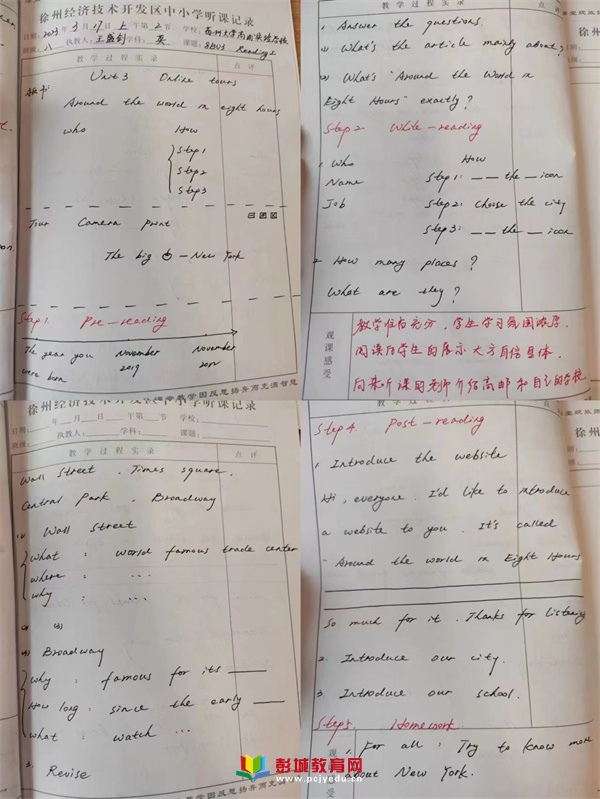 徐州经济技术开发区中小学听课记录
日期: 2023 年 3 月 17 日 上 午第 2 节 学校:
班级: 八 执教人: 学科: 英 课题: 8BU3 Reading 1
教 学 过 程 实 录 点 评
板书: Unit 3 Online tours
Around the world in eight hours
who How
Step 1
Step 2
Step 3
Tour Camera print
The big — New York
Step 1. Pre-reading
The year you November November
were born 2019
徐州经济技术开发区中小学听课记录
日期: 年 月 日 午第 节 学校:
班级: 执教人: 学科: 课题:
教 学 过 程 实 录 点 评
Wall Street. Times square.
Central Park. Broadway
(1) Wall Street
what: world famous trade center
where: ...
why: ...
(2) (3)
(4) Broadway
why: famous for its
How long: since the early
what: watch ...
3. Revise
教 学 过 程 实 录 点
1. Answer the questions.
(1) What's the article mainly about?
(2) What's "Around the World in
Eight Hours" exactly?
Step 2. While-reading
1. Who How
Name Step 1: the icon
Job Step 2: Choose the city
Step 3: the icon
2. How many places?
What are they?
观课感受
教学准备充分,学生学习氛围浓厚.
阅读后学生的展示大方自信且体.
Step 4. Post-reading
1. Introduce the website
Hi, everyone. I'd like to introduce
a website to you. It's called
"Around the world in Eight Hours
So much for it. Thanks for listening
2. Introduce our city.
3. Introduce our school.
Step 5. Homework.
1. For all: Try to know more
about New York.
徐州
彭城教育网
www.pcjyedu.cn